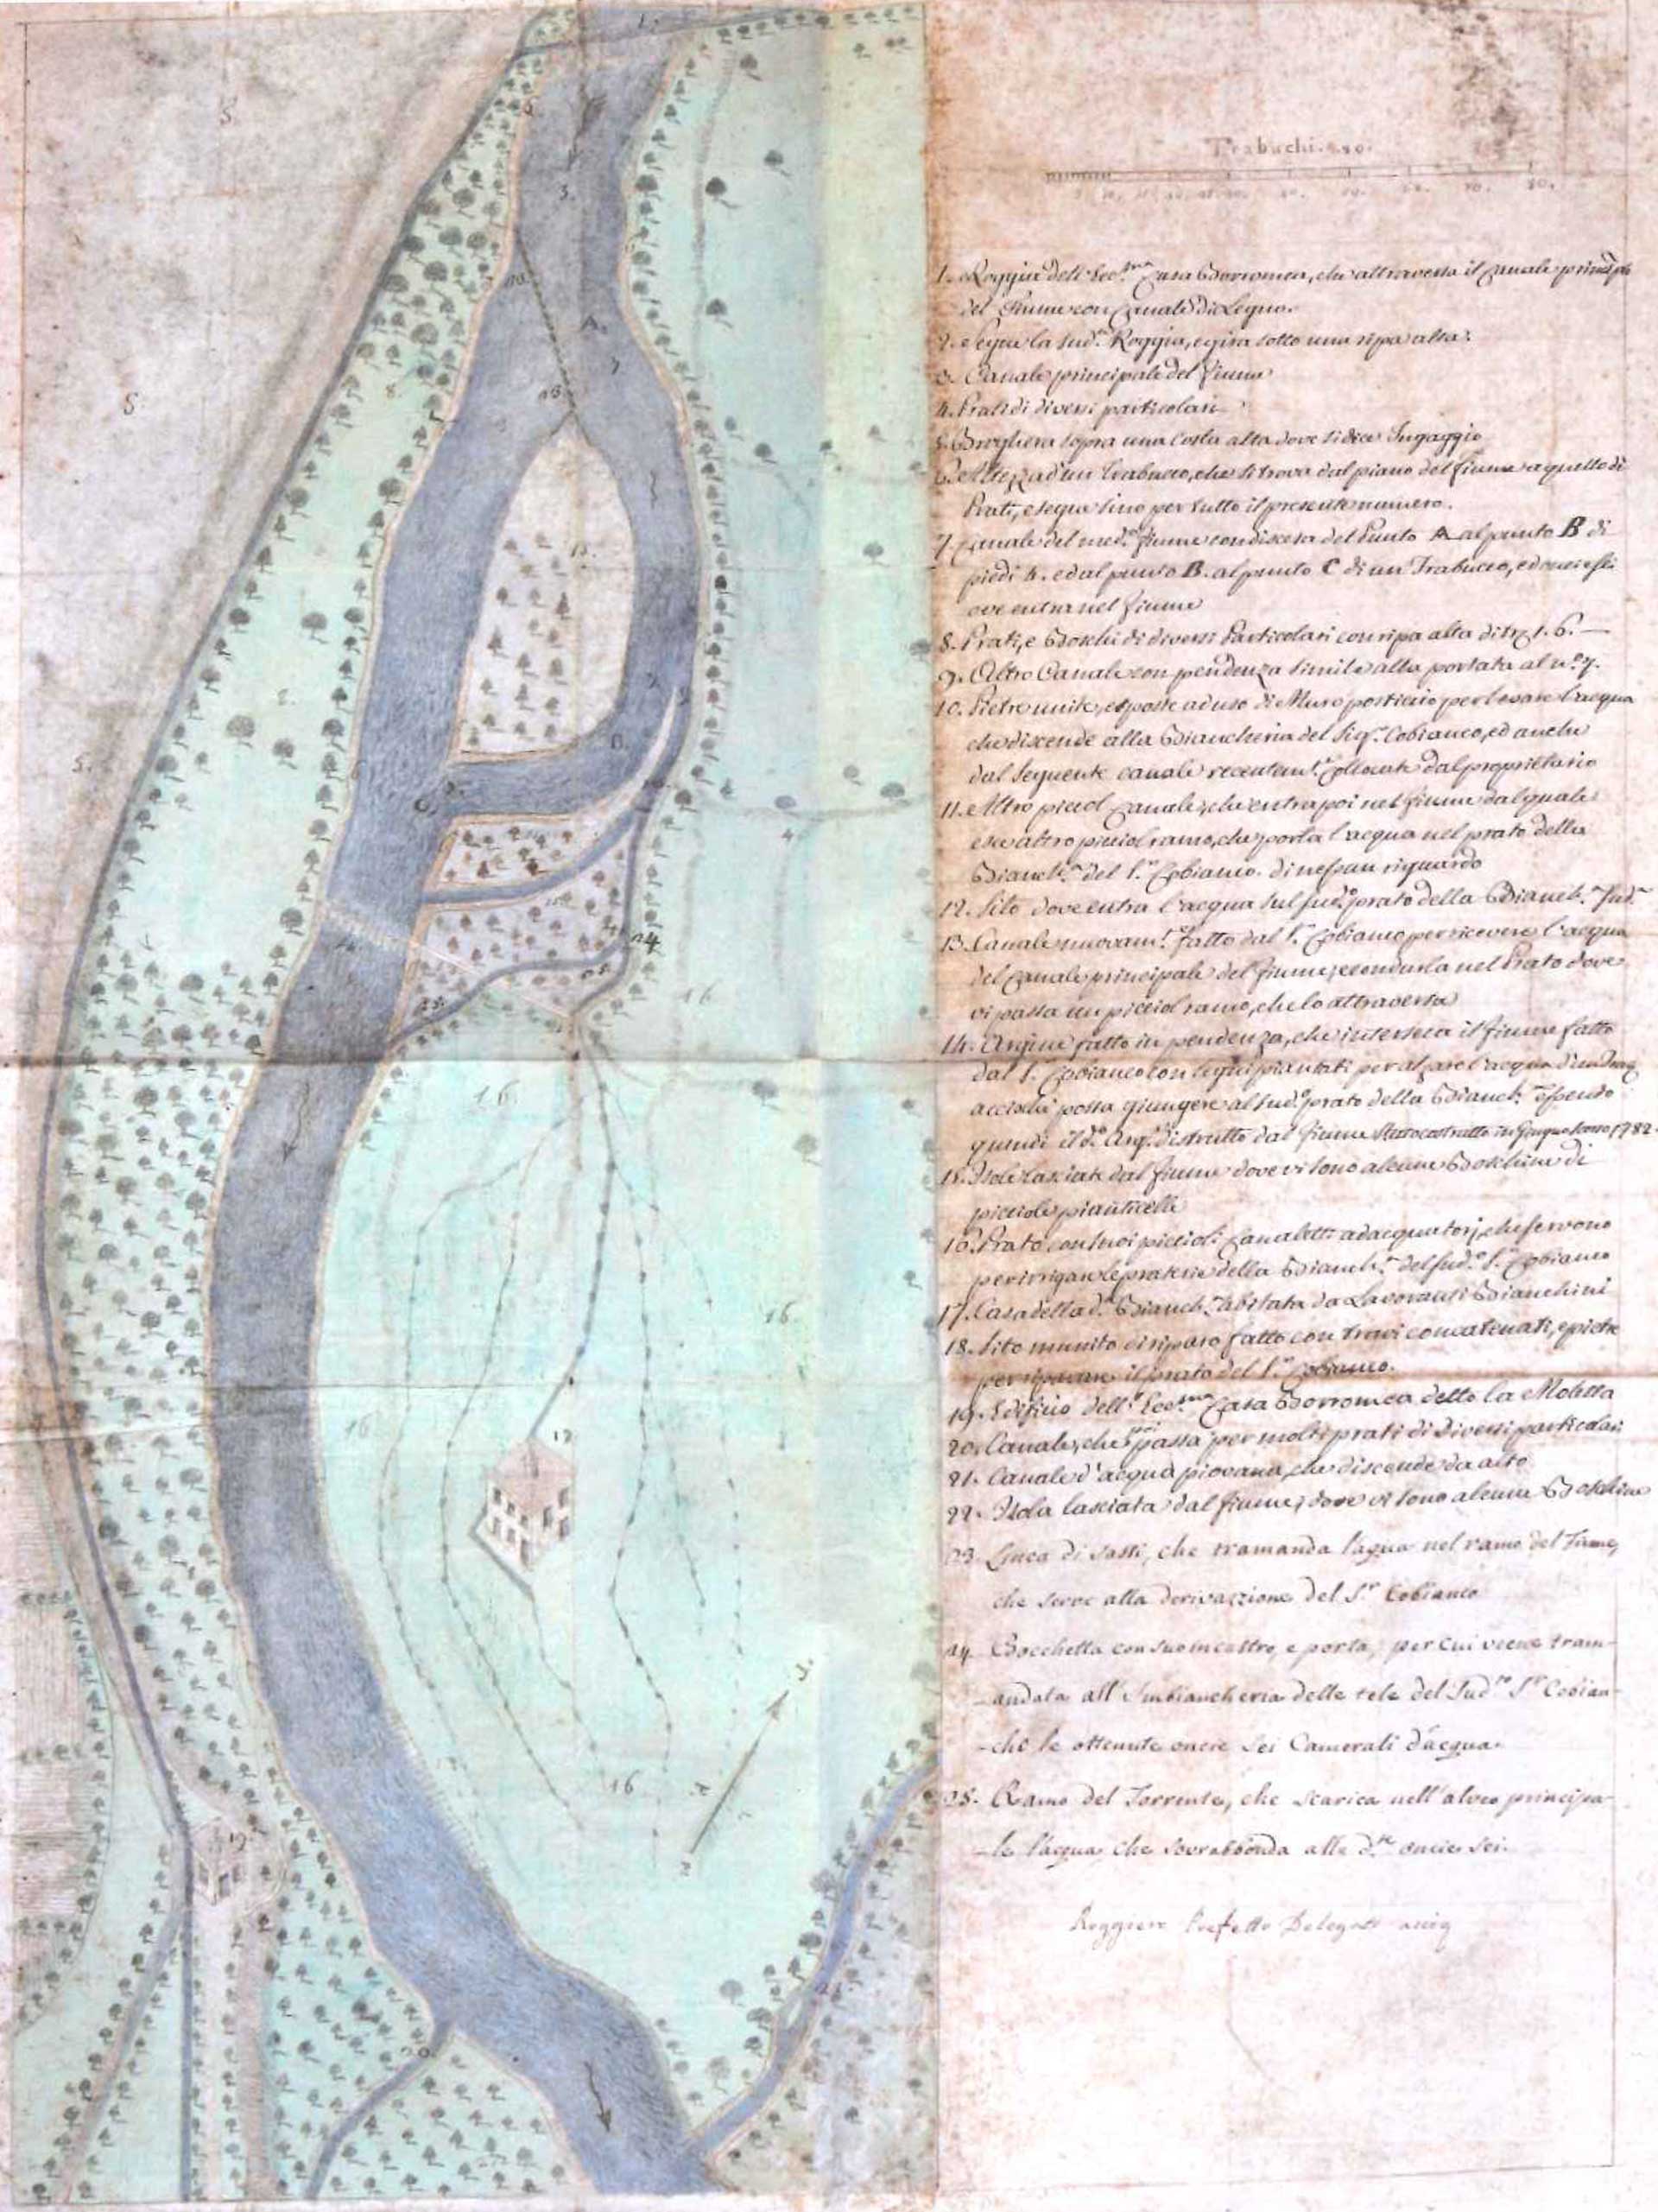 Trabuchi
1. Roggia dell' Ecc.ma Casa Borromea, che attraversa il Canale princip.le
del fiume con Canale di Legno.
2. Segue la sud.a Roggia, e gira sotto una ripa alta.
3. Canale principale del fiume
4. Prati di diversi particolari
5. Brughiera sopra una Costa alta dove si dice Ingaggio
6. Altezza d'un Trabucco, che si trova dal piano del fiume a quello di
Prati, e segue sino per tutto il presente numero.
7. Canale del med.o fiume con discesa del Punto A al punto B di
piedi 4. ed al punto B. al punto C di un Trabucco, ed oncie sei
ove entra nel fiume
8. Prati, e Boschi di diversi Particolari con ripa alta di 1. 6.
9. Altro Canale con pendenza simile alla portata al n.o 7.
10. Pietre unite, e poste ad uso di Muro posticcio per levare l'acqua
che discende alla Biancheria del Sig.r Cobianco, ed anche
dal seguente canale recentem.e collocate dal proprietario
11. Altro picciol Canale, che entra poi nel fiume dal quale
esce altro picciol ramo, che porta l'acqua nel prato della
Bianch.a del S.r Cobianco. di nessun riguardo
12. Sito dove entra l'acqua sul sud.o prato della Bianch.a Sud.a
13. Canale nuovam.e fatto dal S.r Cobianco per ricevere l'acqua
del Canale principale del fiume, e condurla nel Prato dove
vi passa un picciol ramo, che lo attraversa
14. Argine fatto in pendenza, che interseca il fiume fatto
dal S.r Cobianco con legni piantati per alzare l'acqua
acciochè possa giungere al sud.o prato della Bianch.a essendo
quindi il d.o Arg.e distrutto dal fiume in Giugno 1782.
15. Isole lasciate dal fiume dove vi sono alcune Boschine di
picciole pianticelle
16. Prato con suoi piccioli Canaletti adacquatorj, che servono
per irrigare le praterie della Bianch.a del sud.o S.r Cobianco
17. Casa della d.a Bianch.a abitata da Lavoranti Bianchini
18. Sito munito di riparo fatto con travi concatenati, e pietre
per riparare il prato del S.r Cobianco.
19. Edificio dell' Ecc.ma Casa Borromea detto la Moletta
20. Canale, che poi passa per molti prati di diversi particolari
21. Canale d'acqua piovana, che discende da alto
22. Isola lasciata dal fiume, dove vi sono alcune Boschine
23. Linea di sassi, che tramanda l'aqua nel ramo del Fiume,
che serve alla derivazzione del S.r Cobianco
24. Bocchetta con suo incastro, e porta, per cui viene tram-
-andata all' Imbiancheria delle tele del Sud.to S.r Cobian-
-chi le ottenute oncie sei Camerali d'acqua.
25. Ramo del Torrente, che scarica nell' alveo principa-
-le l'acqua che sovrabbonda alle d.te oncie sei.
Ruggieri Prefetto Delegato